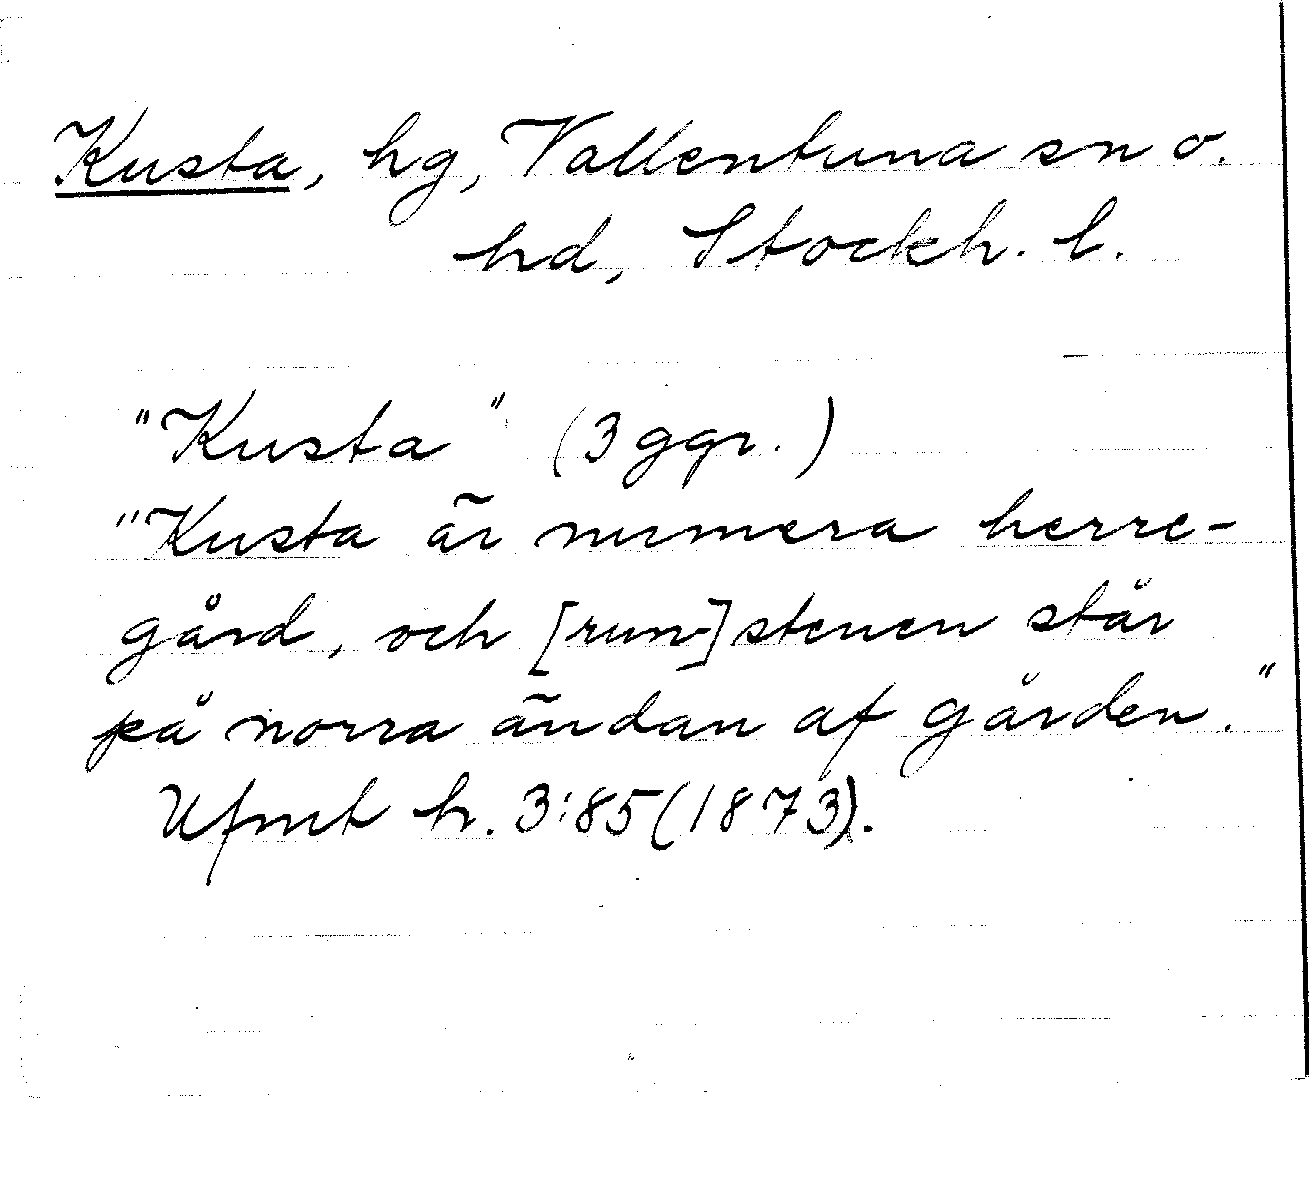 Kusta, hg, Vallentuna sn o.
hd, Stockh. l.
"Kusta" (3 ggr.)
"Kusta är numera herre-
gård, och [run-]stenen står
på norra ändan af gården."
Ufmt h. 3:85(1873).